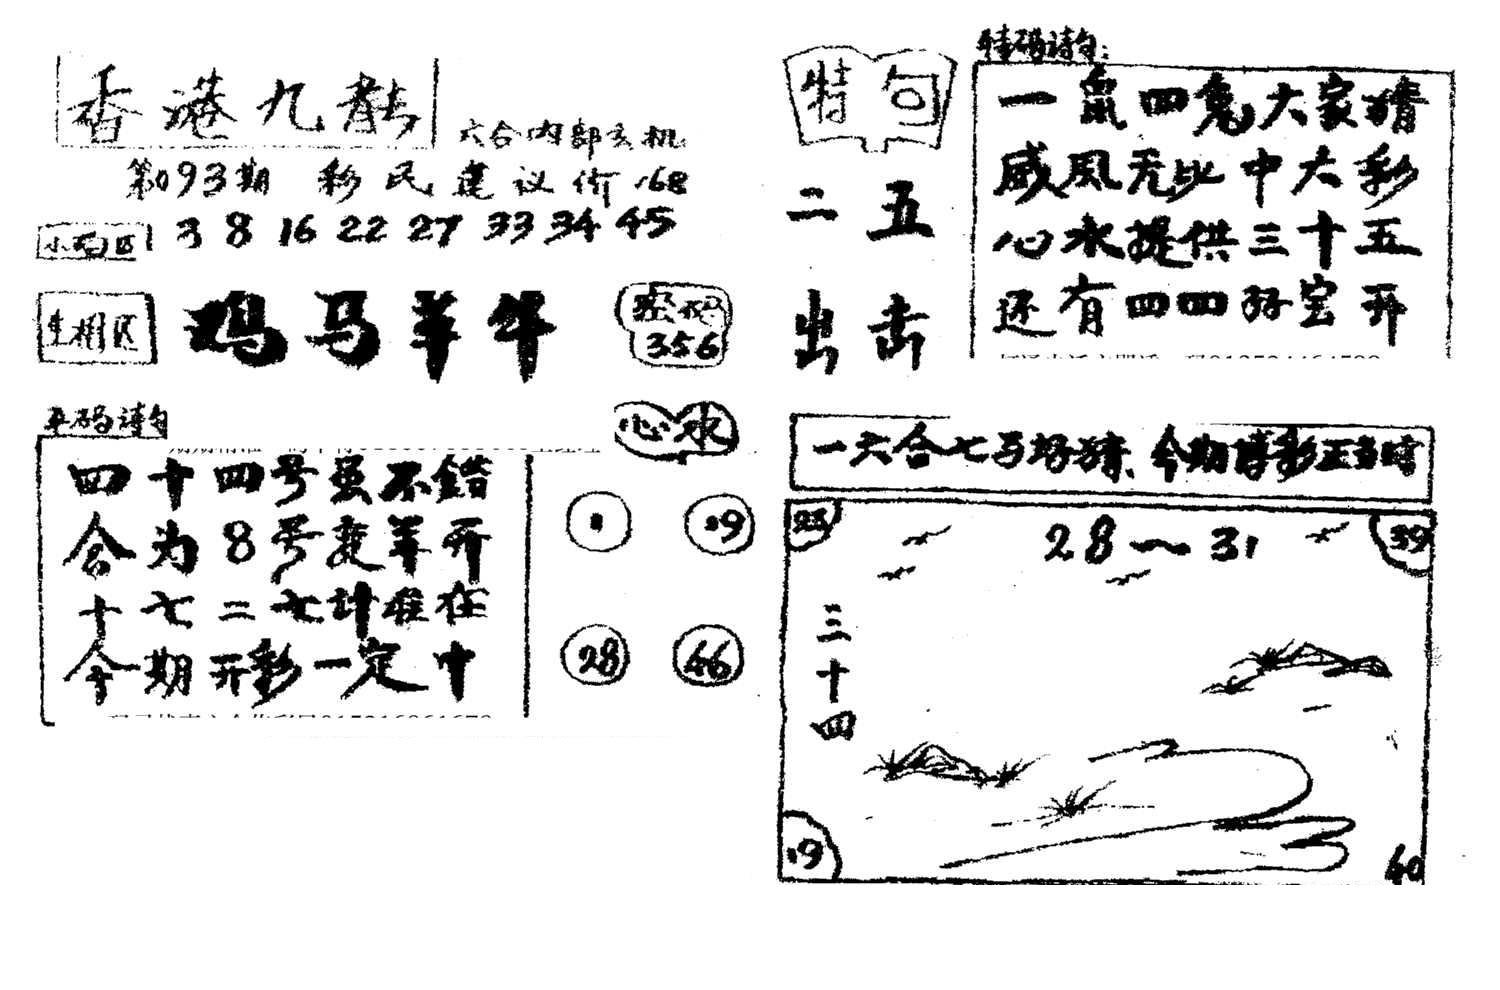 香港九龙
六合内部玄机
第093期 彩民建议价168
小码区 3 8 16 22 27 33 34 45
生肖区 鸡马羊牛
356
平码诗句
四十四号虽不错
合为8号变羊开
十七二七计准在
今期开彩一定中
心水
19
28 46
特句
二五
出击
特码诗句:
一鼠四兔大家猜
威风无比中大彩
心水提供三十五
还有四四好宝开
一六合七马好猜、今期博彩正当时
23 28~31 39
三十四
19 40